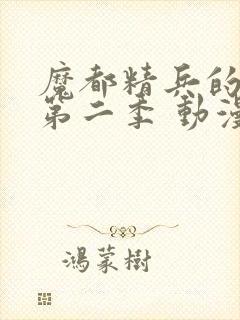 魔都精兵的
第二季 動漫
鴻蒙樹